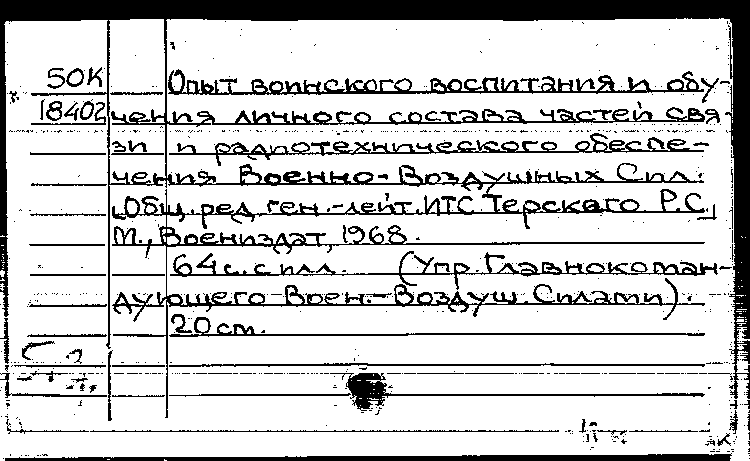 50К
18402
Опыт воинского воспитания и обу-
чения личного состава частей свя-
зи и радиотехнического обеспе-
чения Военно-Воздушных Сил.
[Общ. ред. ген.-лейт. ИТС Терского Р.С.]
М., Воениздат, 1968.
64 с. с илл. (Упр. Главнокоман-
дующего Воен.-Воздуш. Силами).
20 см.